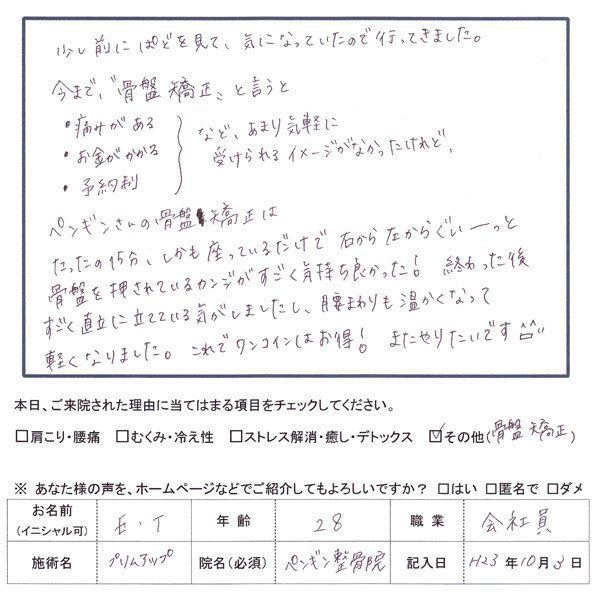 少し前にぱどを見て、気になっていたので行ってきました。
今まで、"骨盤矯正"と言うと
・痛みがある
・お金がかかる
・予約制
など、あまり気軽に
受けられるイメージがなかったけれど、
ペンギンさんの骨盤矯正は
たったの15分、しかも座っているだけで右から左からぐいーっと
骨盤を押されているカンジがすごく気持ち良かった！ 終わった後
すごく直立に立てている気がしましたし、腰まわりも温かくなって
軽くなりました。これでワンコインはお得！ またやりたいです^^
本日、ご来院された理由に当てはまる項目をチェックしてください。
□肩こり・腰痛 □むくみ・冷え性 □ストレス解消・癒し・デトックス ☑その他(骨盤矯正)
※ あなた様の声を、ホームページなどでご紹介してもよろしいですか？ □はい □匿名で □ダメ
お名前(イニシャル可) E・T 年齢 28 職業 会社員
施術名 プリムアップ 院名(必須) ペンギン整骨院 記入日 H23年10月3日